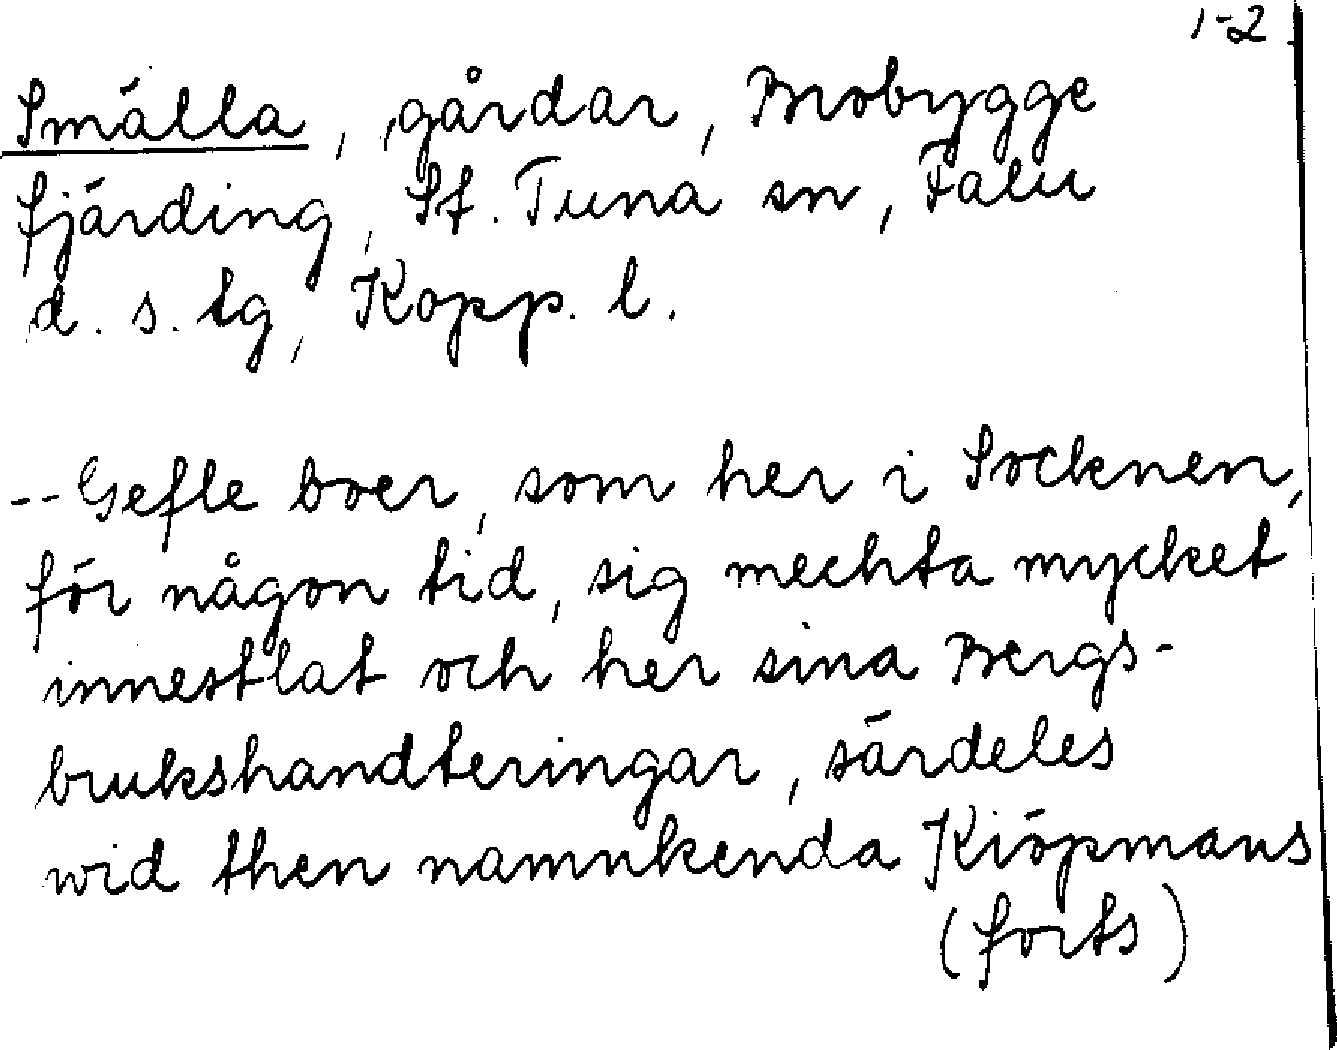 1-2
Smälla, gårdar, Brobygge
fjärding, St. Tuna sn, Falu
d. s. lg, Kopp. l.
-- Gefle boer, som her i Socknen,
för någon tid, sig mechta mycket
innestlat och her sina Bergs-
brukshandteringar, särdeles
wid then namnkenda Kiöpmans
(forts)